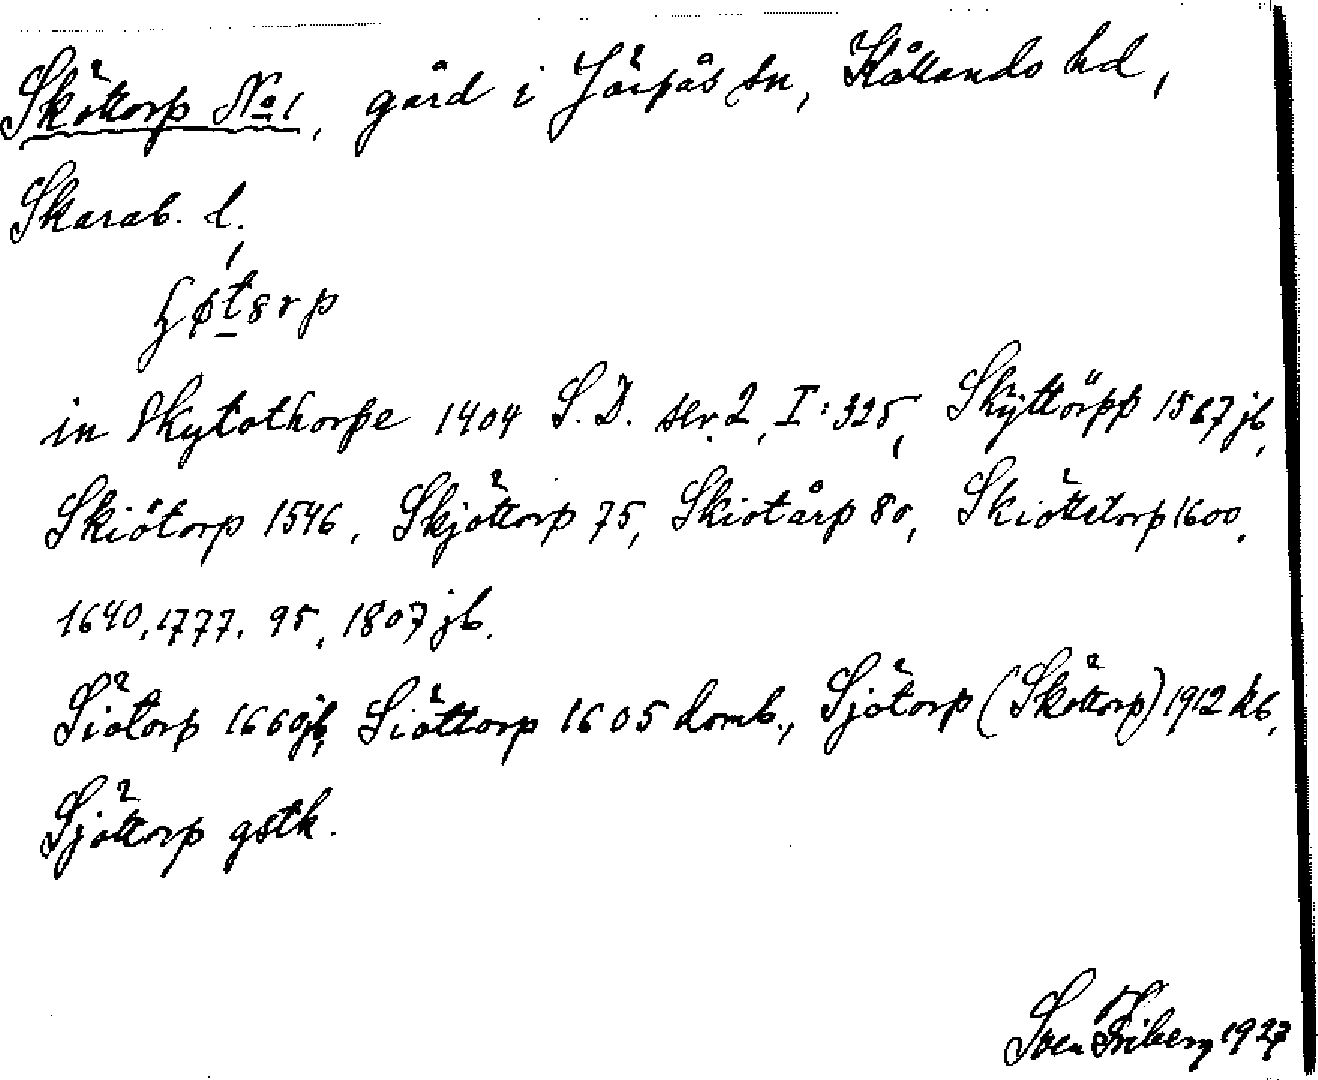 Sköttorp No 1, gård i Järpås sn, Kållands hd,
Skarab. l.
in Skytothorpe 1404 S.D. ser. 2, I:325, Skÿttörpp 1567 jb,
Skiötorp 1546, Skjöttorp 75, Skiotårp 80, Skiöttetorp 1600,
1640, 1777, 95, 1807 jb.
Siötorp 1660 jb, Siöttorp 1605 domb., Sjötorp (Sköttorp) 1912 kb,
Sjöttorp gstk.
Sven Friberg 1927